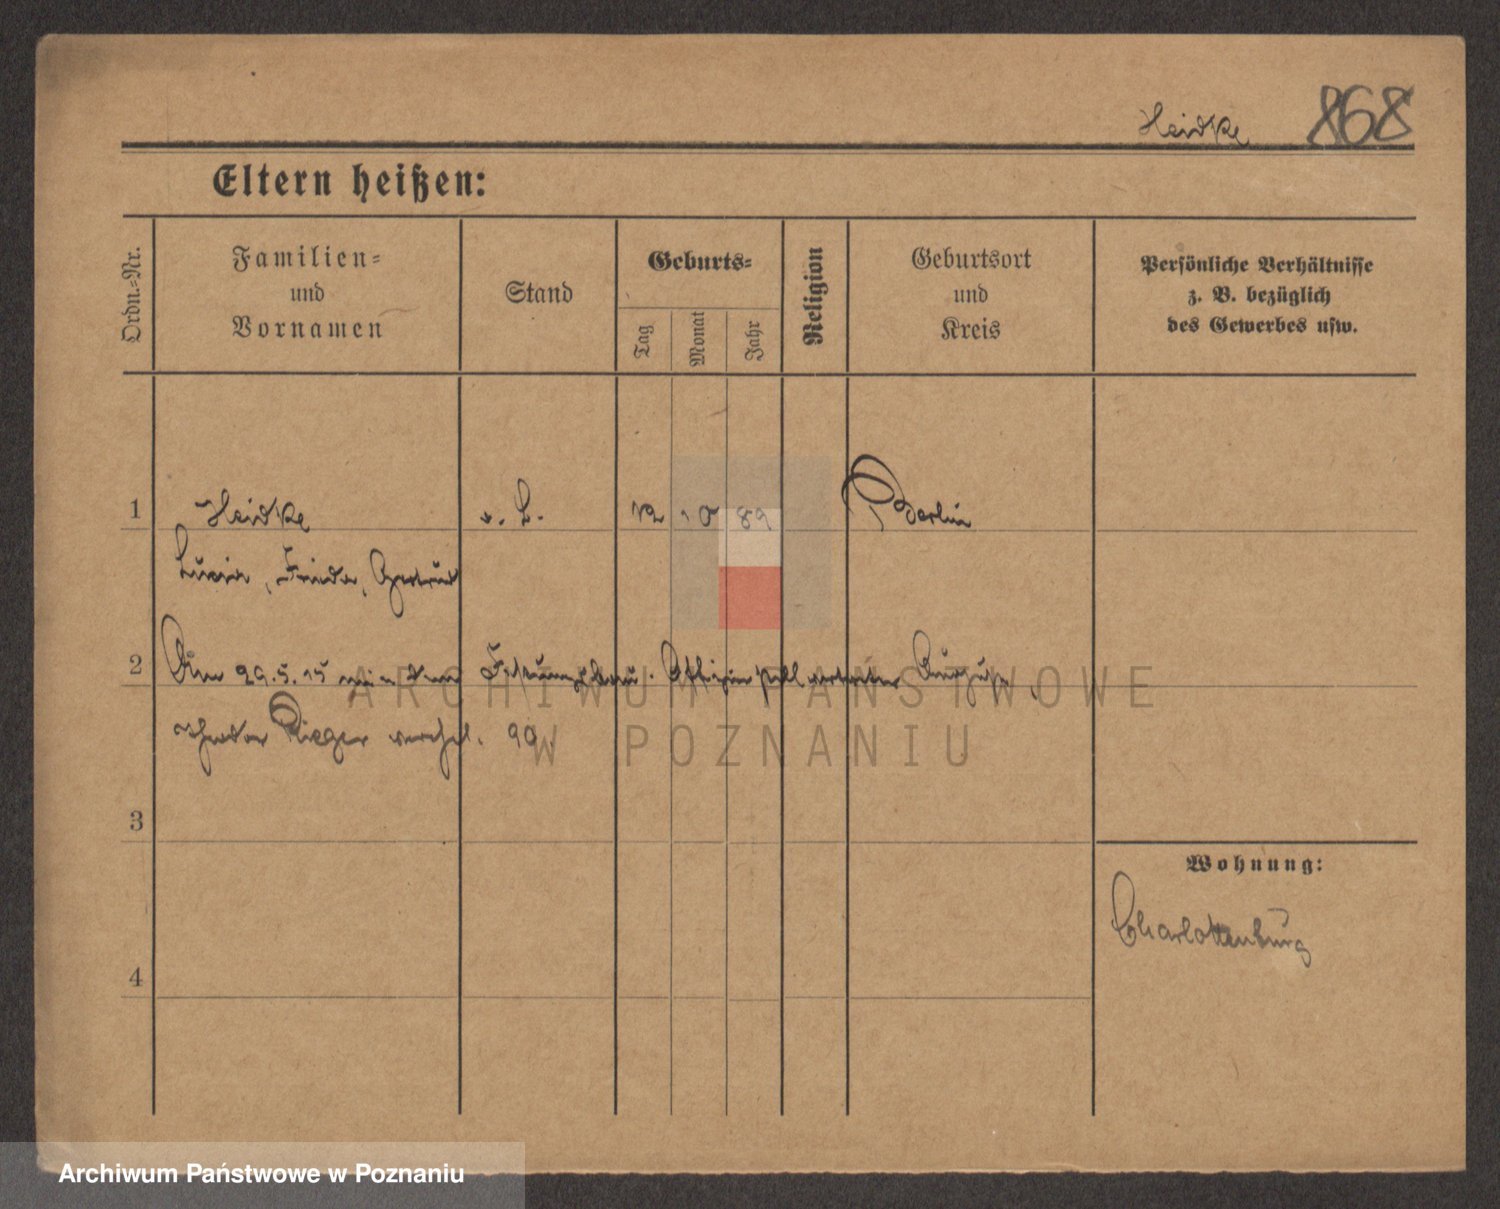 Heidke 868
Eltern heißen:
Ordn.-Nr.
Familien-
und
Vornamen
Stand
Geburts-
Tag
Monat
Jahr
Religion
Geburtsort
und
Kreis
Persönliche Verhältnisse
z. B. bezüglich
des Gewerbes usw.
1 Heidke Berlin
Lucia, Frieda, Gertrud
2 Am 29.5.15 mit dem Festungsbau.
Theodor Rieger verehel. 99.
3
Wohnung:
Charlottenburg
4
ARCHIWUM PAŃSTWOWE
W POZNANIU
Archiwum Państwowe w Poznaniu